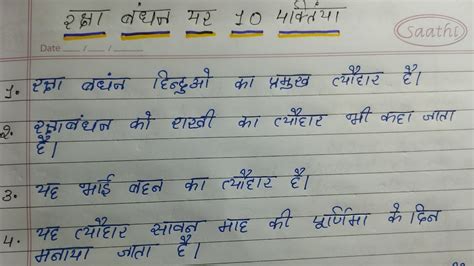 रक्षा बंधन पर 10 पंक्तियां
Saathi
Date / /
1. रक्षा बधंन हिन्दुओ का प्रमुख त्यौहार है।
2. रक्षाबंधन को राखी का त्यौहार भी कहा जाता
है।
3. यह भाई बहन का त्यौहार है।
4. यह त्यौहार सावन माह की पूर्णिमा के दिन
मनाया जाता है।